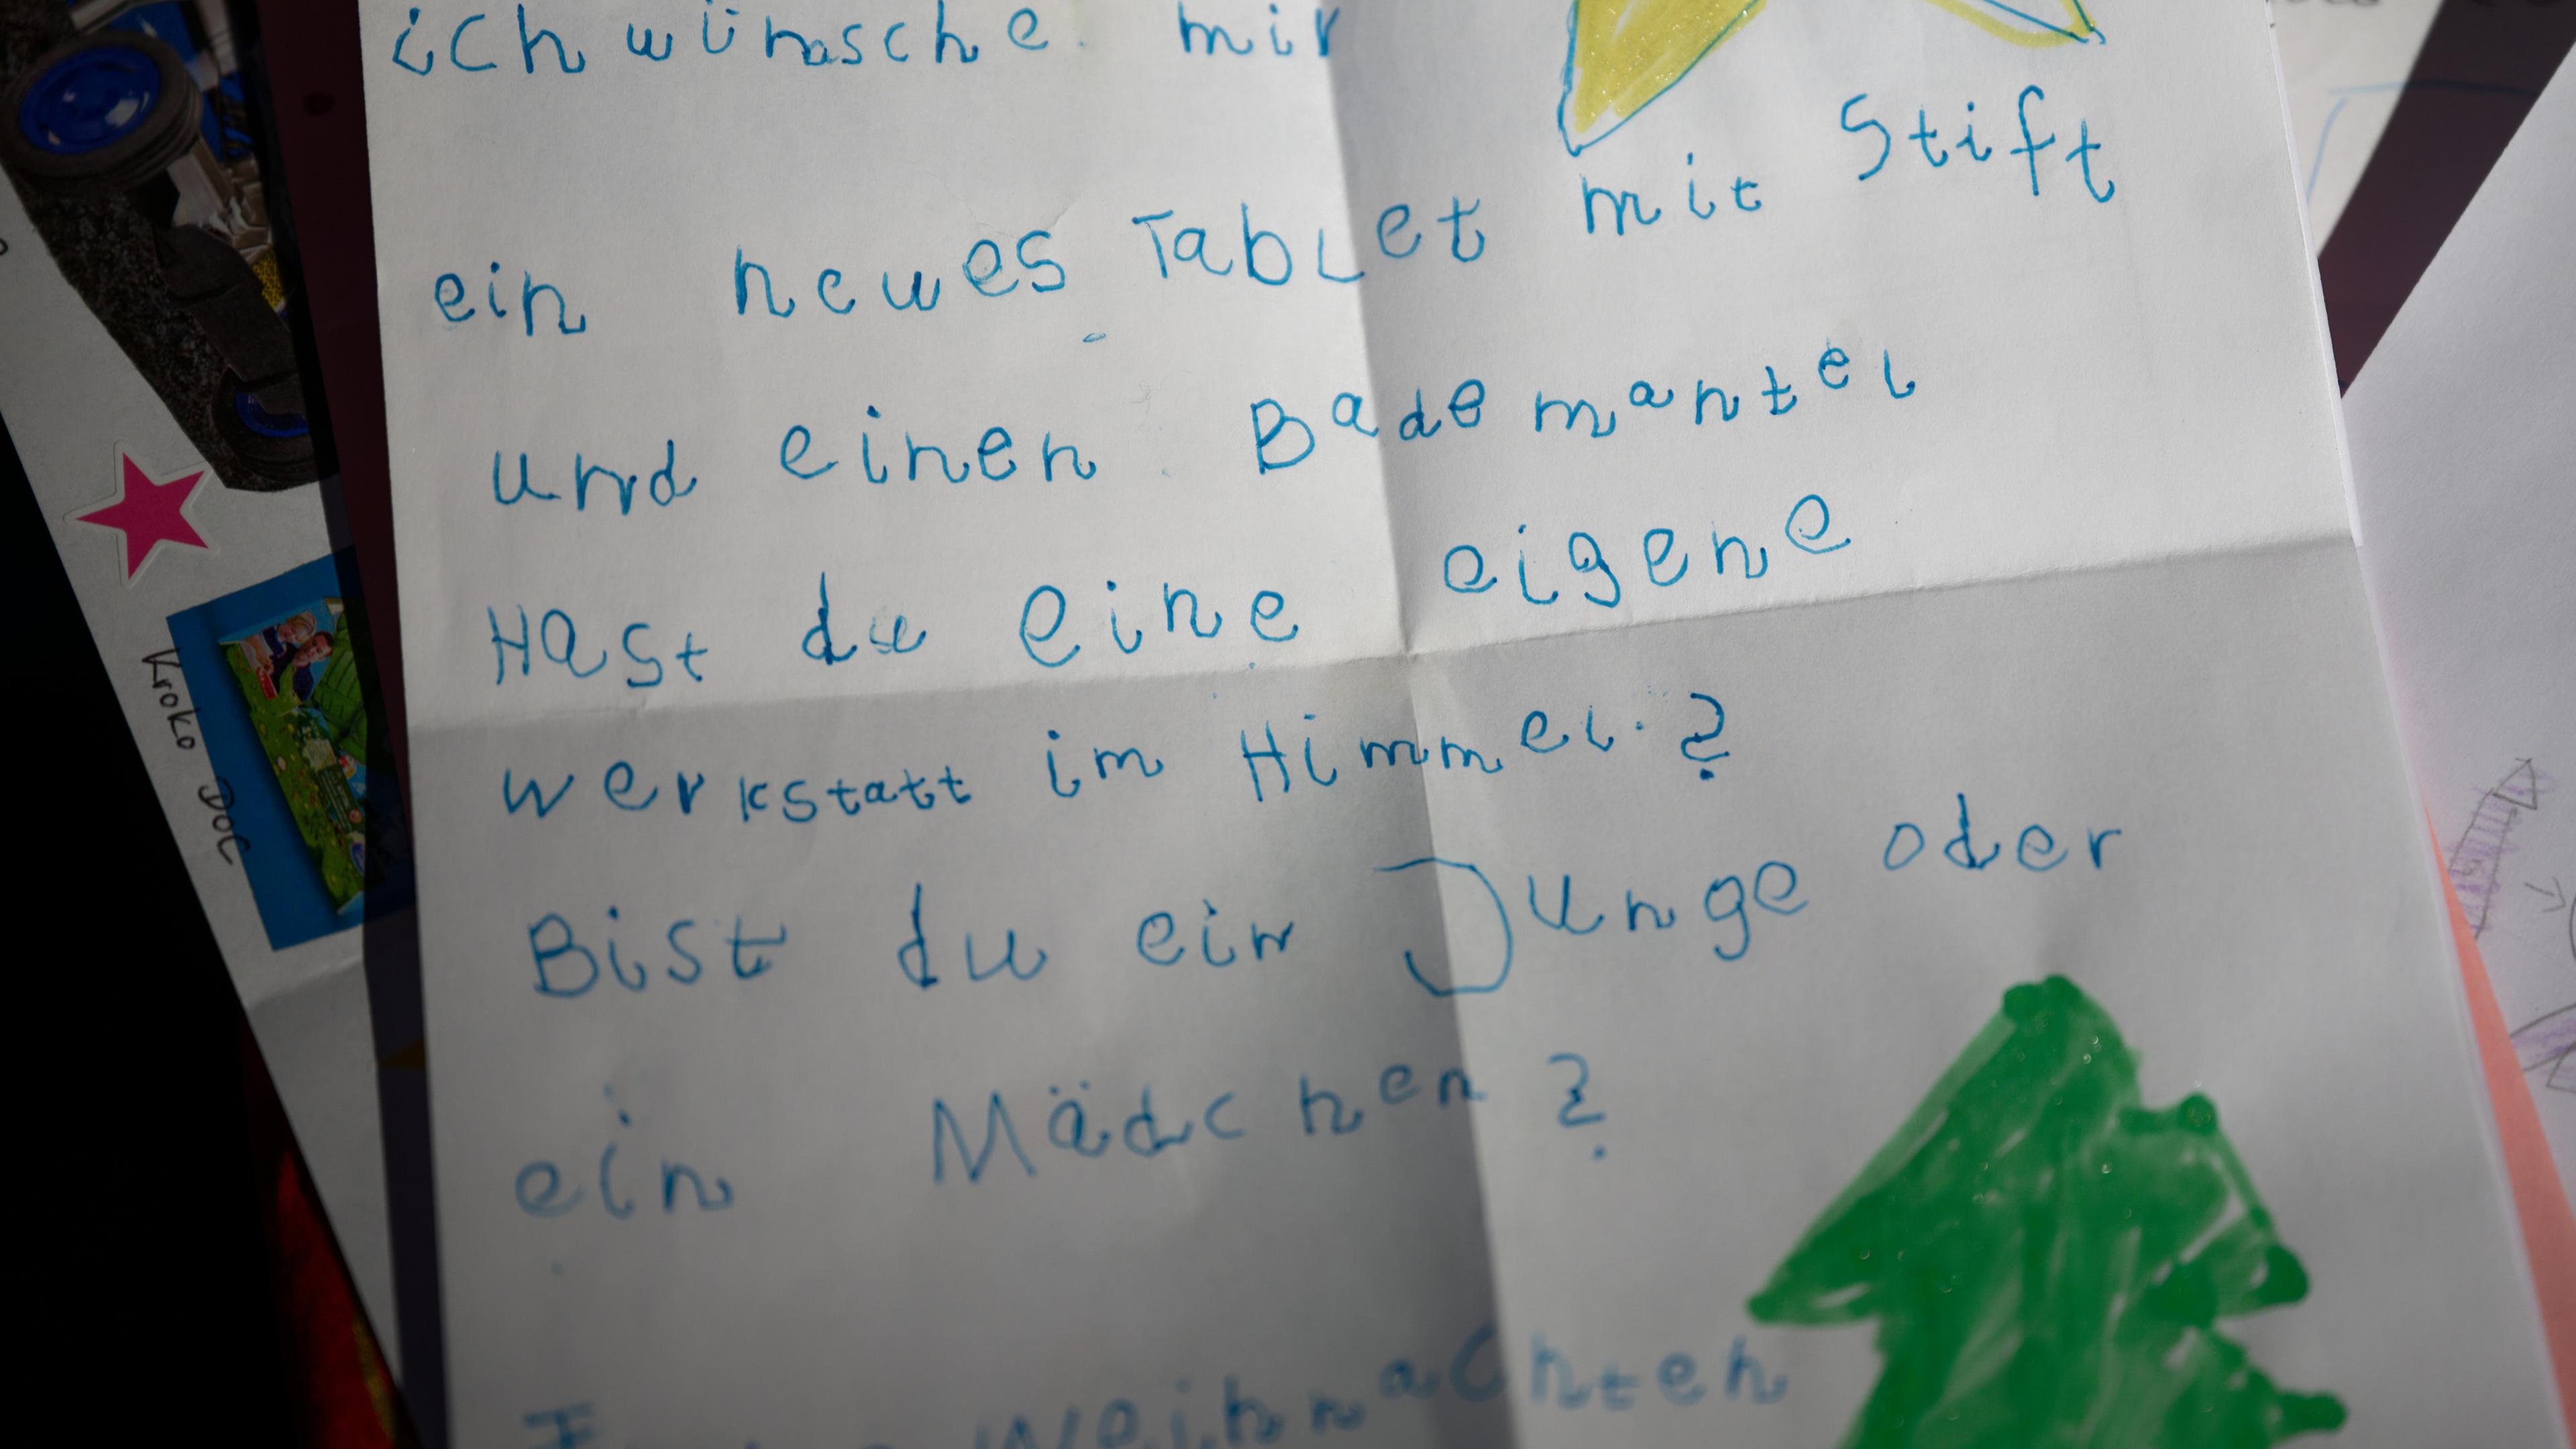 ich wünsche mir
ein neues Tablet mit Stift
und einen Bademantel
Hast du eine eigene
werkstatt im Himmel.?
Bist du ein Junge oder
ein Mädchen?
weihnachten
Kroko DOC